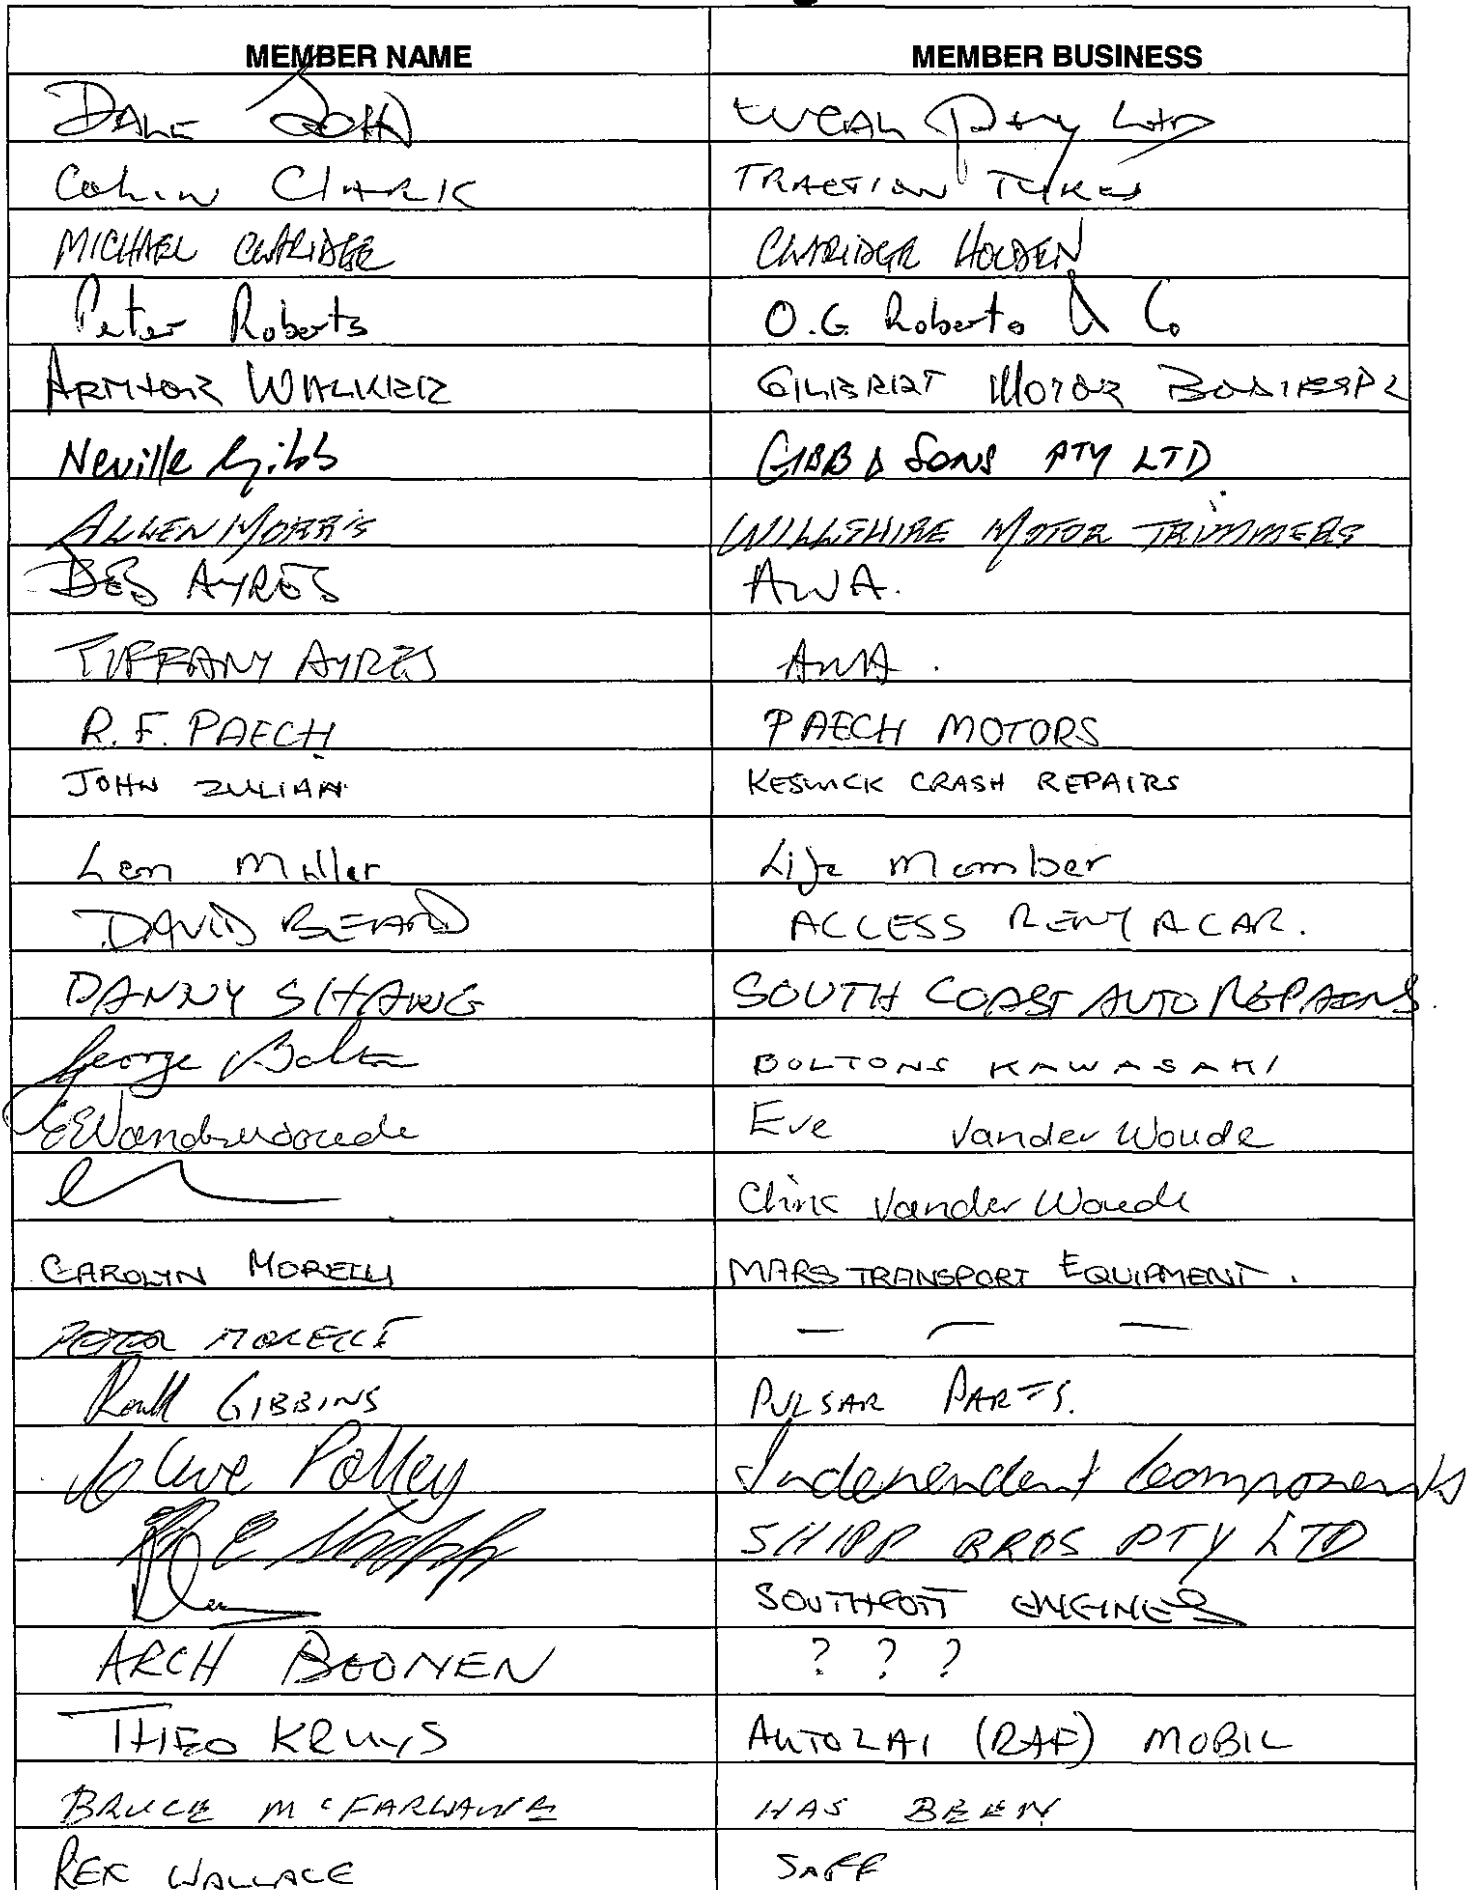 MEMBER NAME MEMBER BUSINESS
DALE JOHN Pty Ltd
Colin Clark TRACTION TYRES
MICHAEL CLARIDGE CLARIDGE HOLDEN
Peter Roberts O.G Roberts & Co
ARTHOR WALKER GILBRIAT MOTOR BODIES P/L
Neville Gibb GIBB & SONS PTY LTD
ALLEN MORRIS WILLSHIRE MOTOR TRIMMERS
DES AYRES AWA.
TIFFANY AYRES AWA.
R.F. PAECH PAECH MOTORS
JOHN ZULIAN KESWICK CRASH REPAIRS
Len Miller Life Member
DAVID BEARD ACCESS RENT A CAR.
DANNY SHAWG SOUTH COAST AUTO REPAIRS.
George Bolton BOLTONS KAWASAKI
EVanderwoude Eve Vander Woude
Chris Vander Woude
CAROLYN MORELLI MARS TRANSPORT EQUIPMENT.
PETER MORELLI — — —
GIBBINS PULSAR PARTS.
Clive Polley Independent Components
E Shipp SHIPP BROS PTY LTD
SOUTHCOTT ENGINES
ARCH BOONEN ? ? ?
THEO KRUYS (RAF) MOBIL
BRUCE McFARLANE HAS BEEN
REX WALLACE SAFF